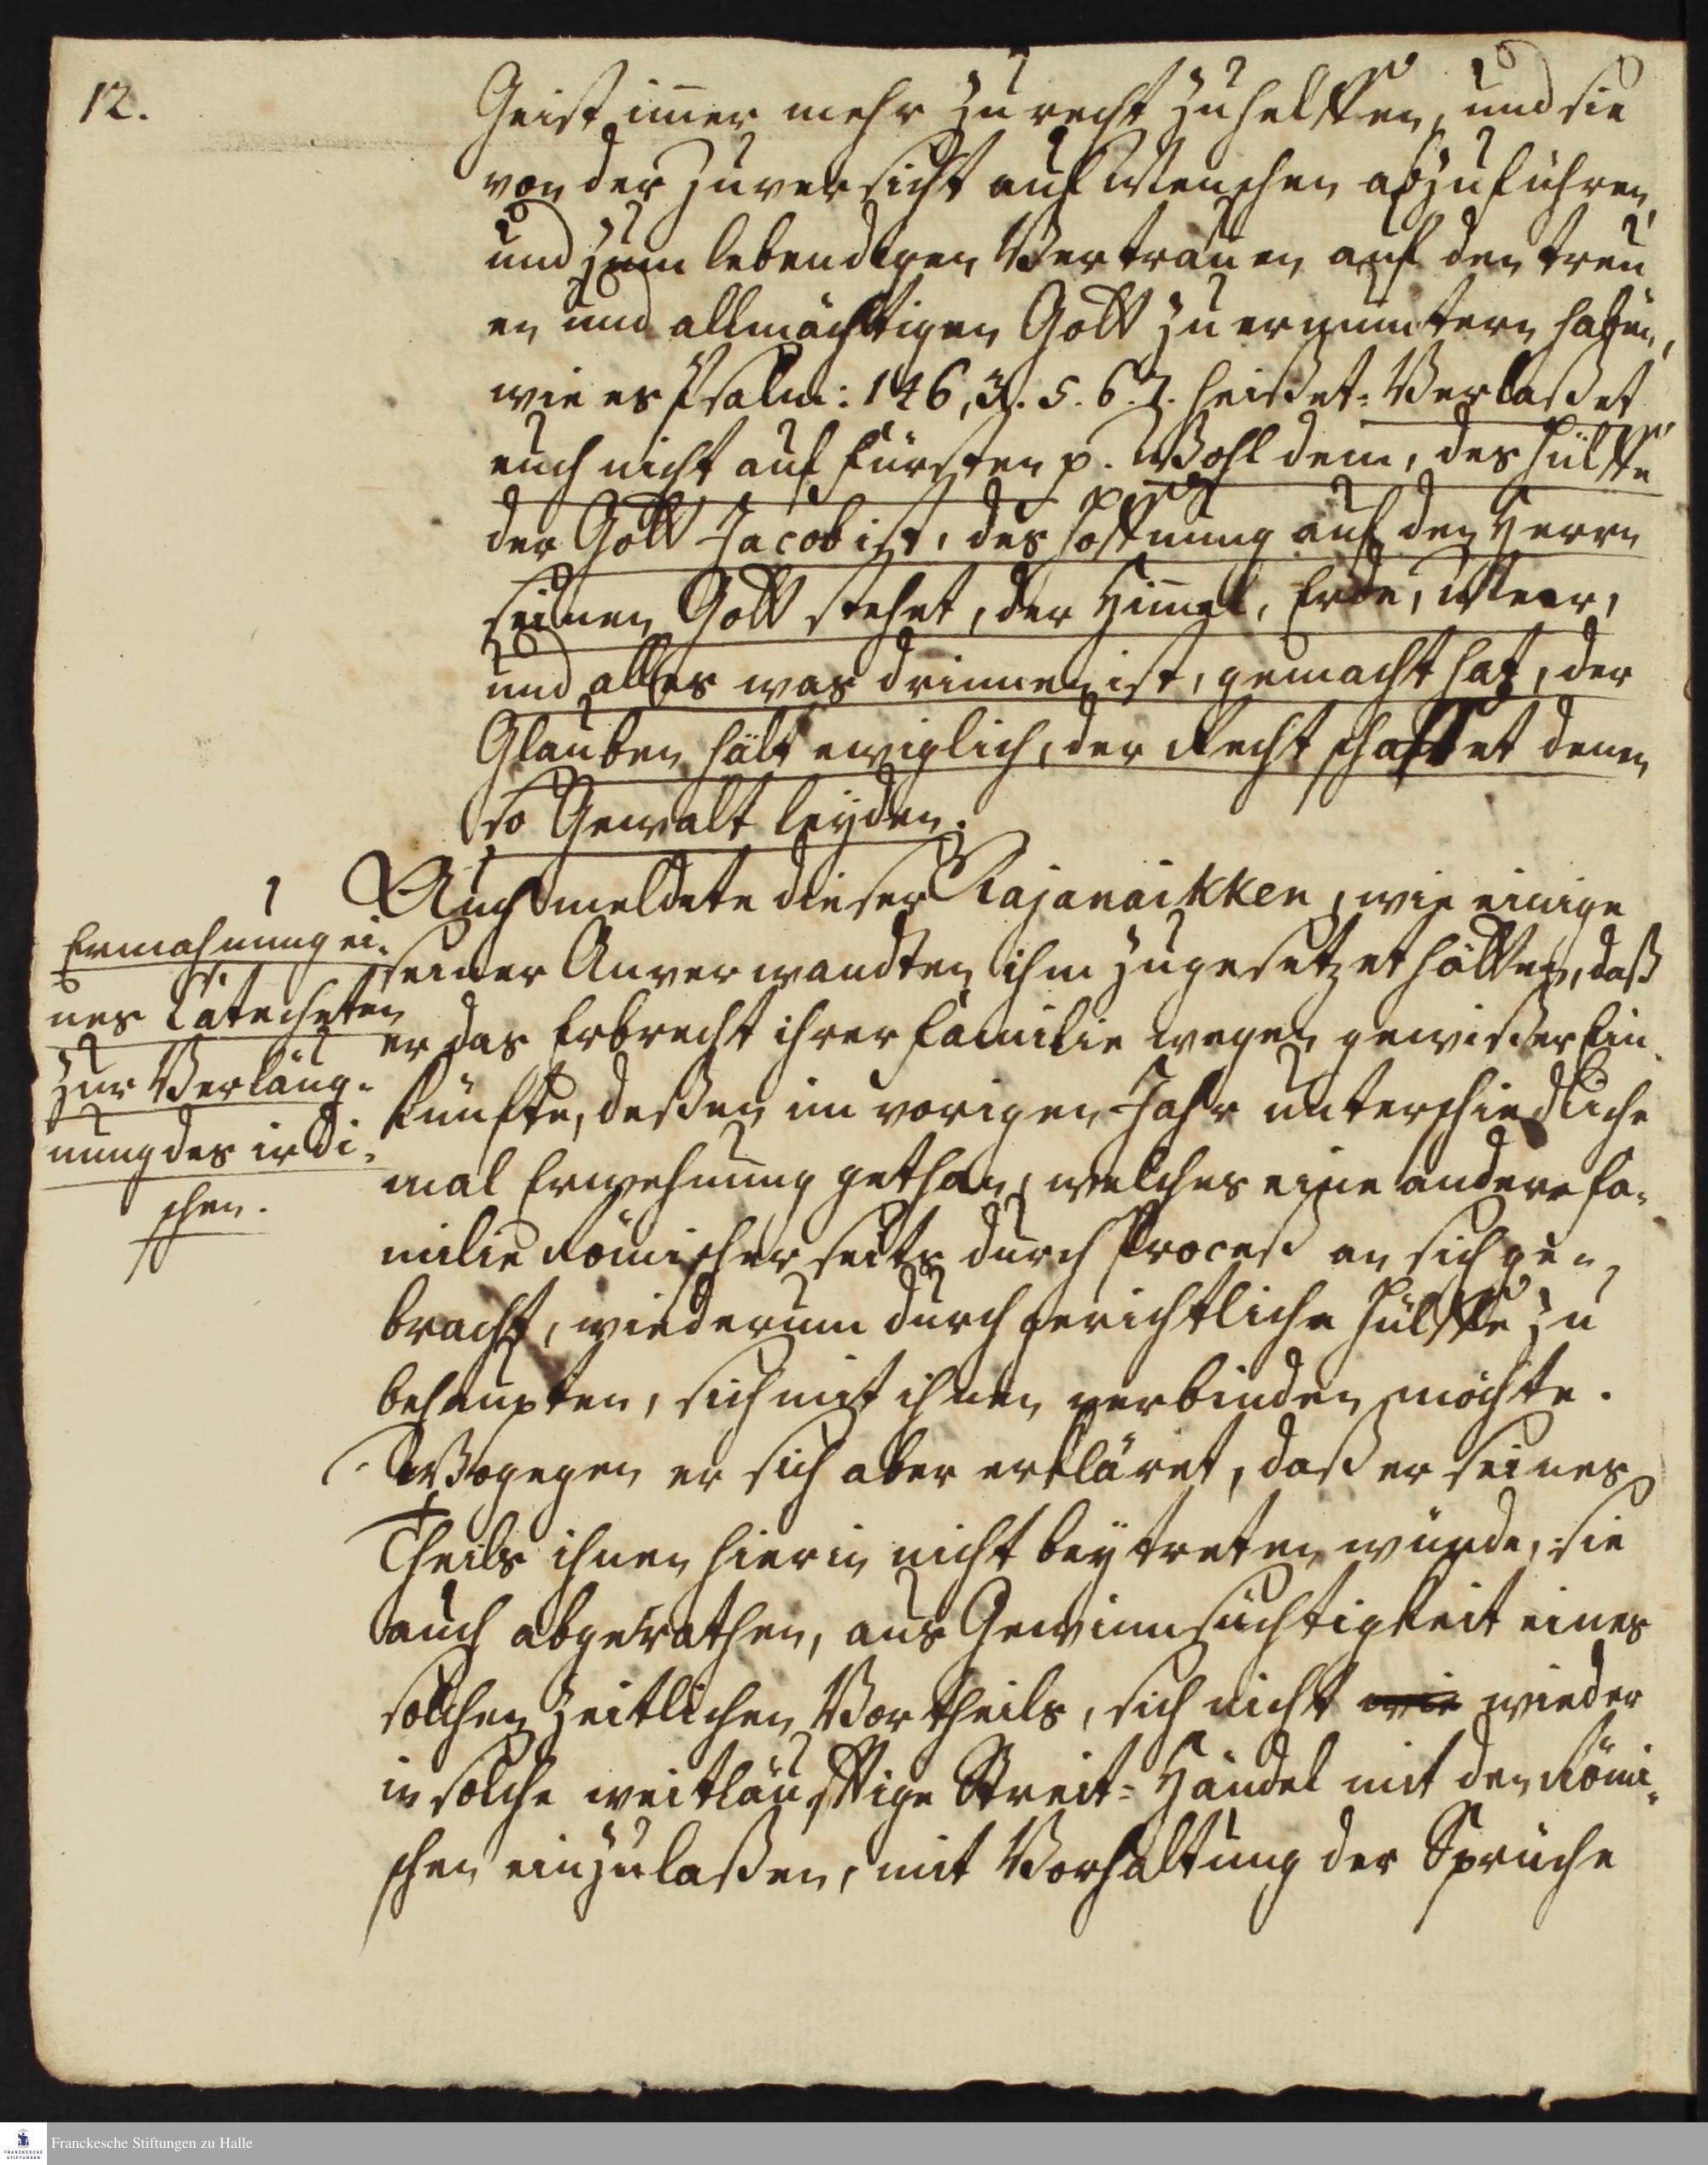 12.
Geist im̅er mehr zu recht zu helffen, und sie
von der Zuversicht auf Menschen abzuführen,
und zum lebendigen Vertrauen auf den treu
en und allmächtigen Gott zu ermuntern haben,
wie es Psalm: 146, 3. 5. 6. 7. heißet: Verlaßet
euch nicht auf Fürsten p. Wohl dem, des Hülffe
der Gott Jacob ist, des Hoffnung auf den Herrn
seinen Gott stehet, der Him̅el, Erde, Meer,
und alles was drinnen ist, gemacht hat, der
Glauben hält ewiglich, der Recht schaffet denen
so Gewalt leyden.
1 Auch meldete dieser Rajanaikken, wie einige
seiner Anverwandten ihm zugesetzet hätten, daß
er das Erbrecht ihrer Familie wegen gewißer Ein-
künffte, deßen im vorigen Jahr unterschiedliche
mal Erwehnung gethan, welches eine andere Fa-
milie Römischer seits durch Proceß an sich ge-
bracht, wiederum durch gerichtliche Hülffe zu
behaupten, sich mit ihnen verbinden möchte.
Wogegen er sich aber erkläret, daß er seines
Theils ihnen hierin nicht beytreten würde, sie
auch abgerathen, aus Gewinnsüchtigkeit eines
solchen zeitlichen Vortheils, sich nicht wie wieder
in solche weitläufftige Streit-Händel mit den Römi-
schen einzulaßen, mit Vorhaltung der Sprüche
Ermahnung ei-
nes Catecheten
zur Verläug-
nung des irdi-
schen.
Franckesche Stiftungen zu Halle
FRANCKESCHE
STIFTUNGEN